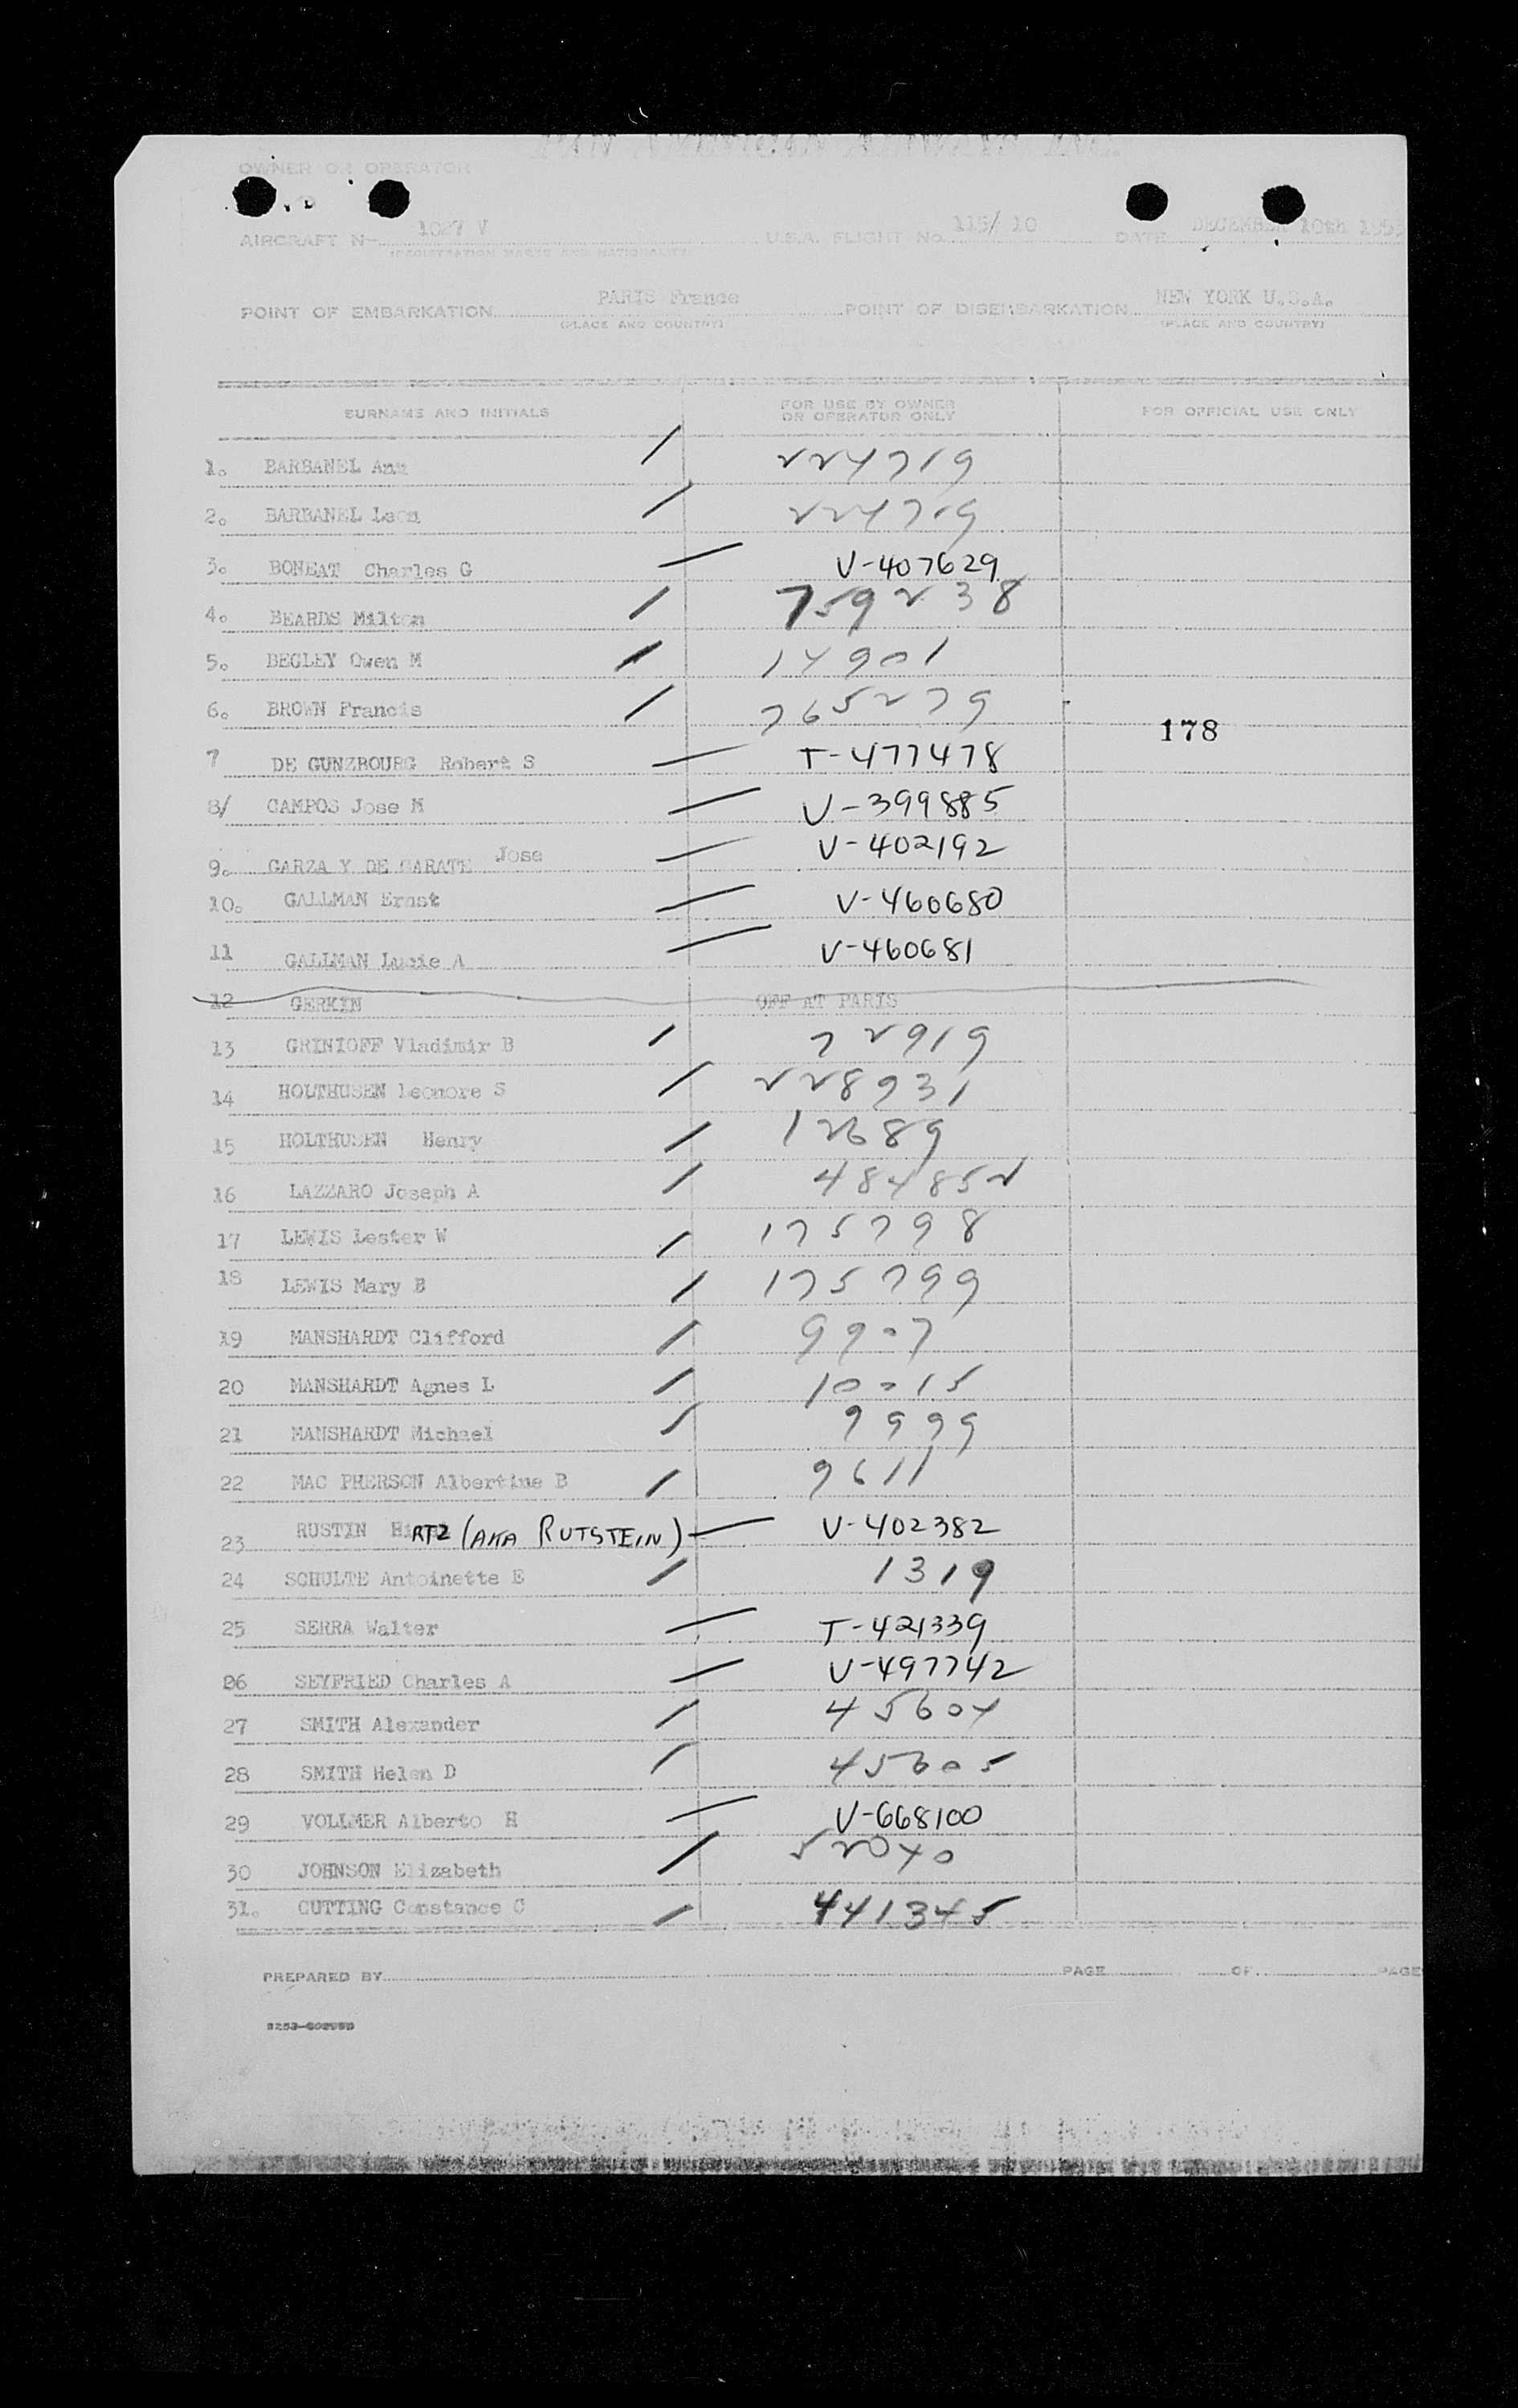 PAN AMERICAN AIRWAYS INC.
OWNER OR OPERATOR
AIRCRAFT N- 1027 V U.S.A. FLIGHT No. 115/ 10 DATE DECEMBER 10th 195
(REGISTRATION MARKS AND NATIONALITY)
POINT OF EMBARKATION PARIS France POINT OF DISEMBARKATION NEW YORK U.S.A.
(PLACE AND COUNTRY) (PLACE AND COUNTRY)
SURNAME AND INITIALS FOR USE BY OWNER OR OPERATOR ONLY FOR OFFICIAL USE ONLY
1. BARBANEL Ann / 224719
2. BARBANEL Leon / 224719
3. BONEAT Charles G — V-407629
4. BEARDS Milton / 759238
5. BEGLEY Owen M / 14901
6. BROWN Francis / 765279
178
7 DE GUNZBOURG Robert S — T-477478
8/ CAMPOS Jose M — V-399885
9. GARZA Y DE GARATE Jose — V-402192
10. GALLMAN Ernst — V-460680
11 GALLMAN Lucie A — V-460681
12 GERKIN OFF AT PARIS
13 GRINIOFF Vladimir B / 72919
14 HOLTHUSEN Leonore S / 228931
15 HOLTHUSEN Henry / 12689
16 LAZZARO Joseph A / 484852
17 LEWIS Lester W / 175798
18 LEWIS Mary B / 175799
19 MANSHARDT Clifford / 9907
20 MANSHARDT Agnes L / 10015
21 MANSHARDT Michael / 9999
22 MAC PHERSON Albertine B / 9611
23 RUSTIN RTZ (AKA RUTSTEIN) — V-402382
24 SCHULTE Antoinette E / 1319
25 SERRA Walter — T-421339
26 SEYFRIED Charles A — V-497742
27 SMITH Alexander / 45604
28 SMITH Helen D / 45605
29 VOLLMER Alberto H — V-668100
30 JOHNSON Elizabeth / 52040
31. CUTTING Constance C / 441345
PREPARED BY PAGE OF PAGE